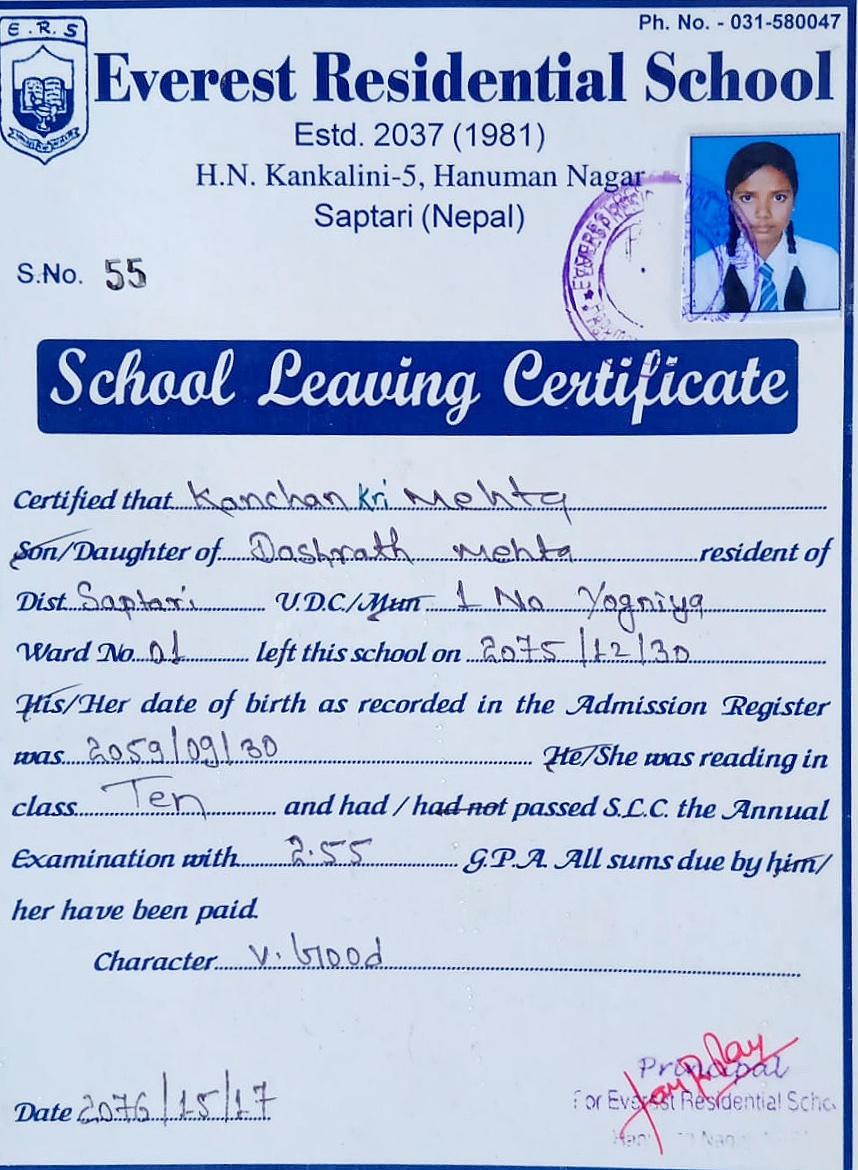 E.R.S
Ph. No. - 031-580047
Everest Residential School
Estd. 2037 (1981)
H.N. Kankalini-5, Hanuman Nagar
Saptari (Nepal)
S.No. 55
School Leaving Certificate
Certified that Kanchan Kri Mehta
Son/Daughter of Dashrath Mehta resident of
Dist Saptari V.D.C./Mun 1 No Yogniya
Ward No. 01 left this school on 2075/12/30
His/Her date of birth as recorded in the Admission Register
was 2059/09/30 He/She was reading in
class Ten and had / had not passed S.L.C. the Annual
Examination with 2.55 G.P.A. All sums due by him/
her have been paid.
Character V. Good
Date 2076/15/17
Principal
For Everest Residential Scho